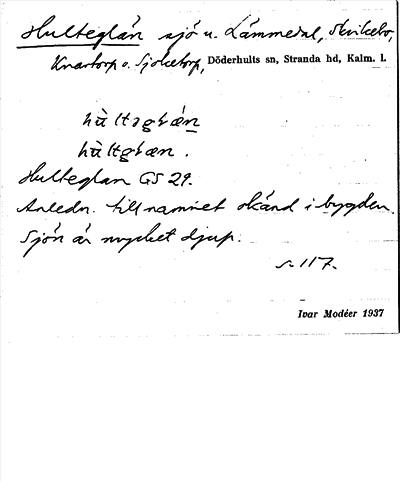 Hulteglan sjö u. Lämmedal, Skvikebo,
Knartorp o. Sjöletorp, Döderhults sn, Stranda hd, Kalm. l.
hu̇ltəglæ̀n
hùltglæn.
Hulteglan GS 29.
Anledn. till namnet okänd i bygden.
Sjön är mycket djup.
s. 117.
Ivar Modéer 1937